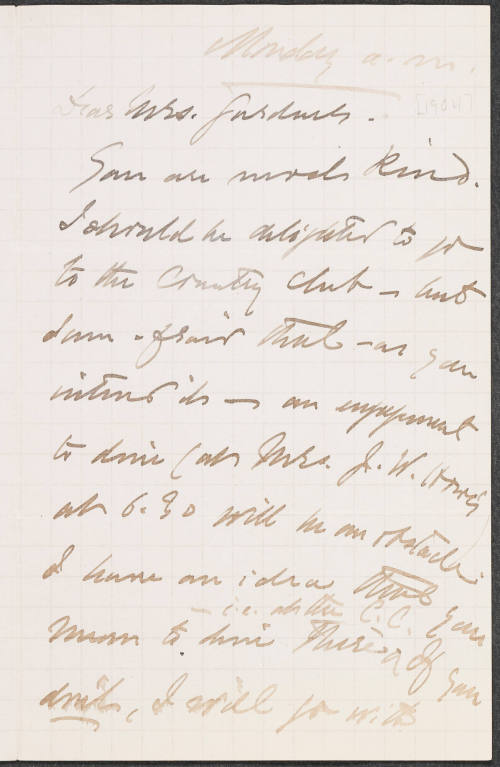 Monday a.m.
[1904]
Dear Mrs. Gardner.
You are most kind.
I should be delighted to go
to the Country Club – but
I am afraid that – as you
intend it – an engagement
to dine (at Mrs. J. W. Howe's
at 6.30 will be an obstacle.
I have an idea that you
– i.e. at the C.C.
mean to dine there. If you
don't, I will go with